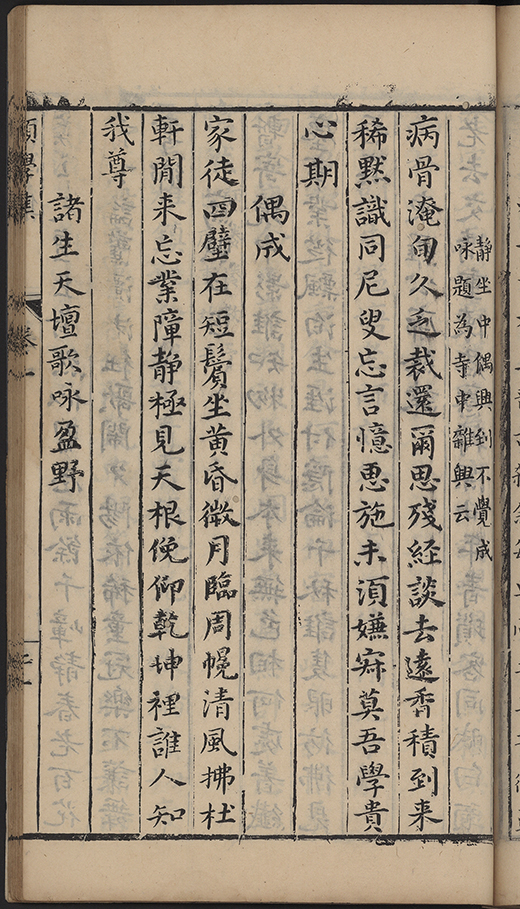 静坐中偶興到不覺成
咏題為寺中雜興云
病骨淹旬久乏裁還爾思殘経談去遠香積到来
稀黙識同尼叟忘言憶惠施未湏嫌寂莫吾學貴
心期
偶成
家徒四壁在短鬢坐黄昏微月臨周幌清風拂杜
軒閒来忘業障静極見天根俛仰乾坤裡誰人知
我尊
諸生天壇歌咏盈野
卷一